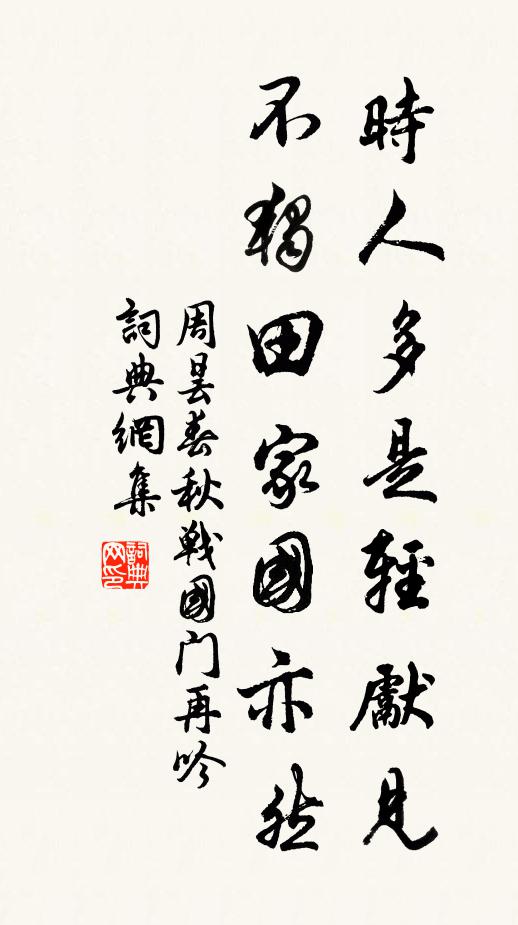 時人多是輕獻見
不獨田家國亦然
周曇春秋戰國门再吟
詞典網集
詞典
网印